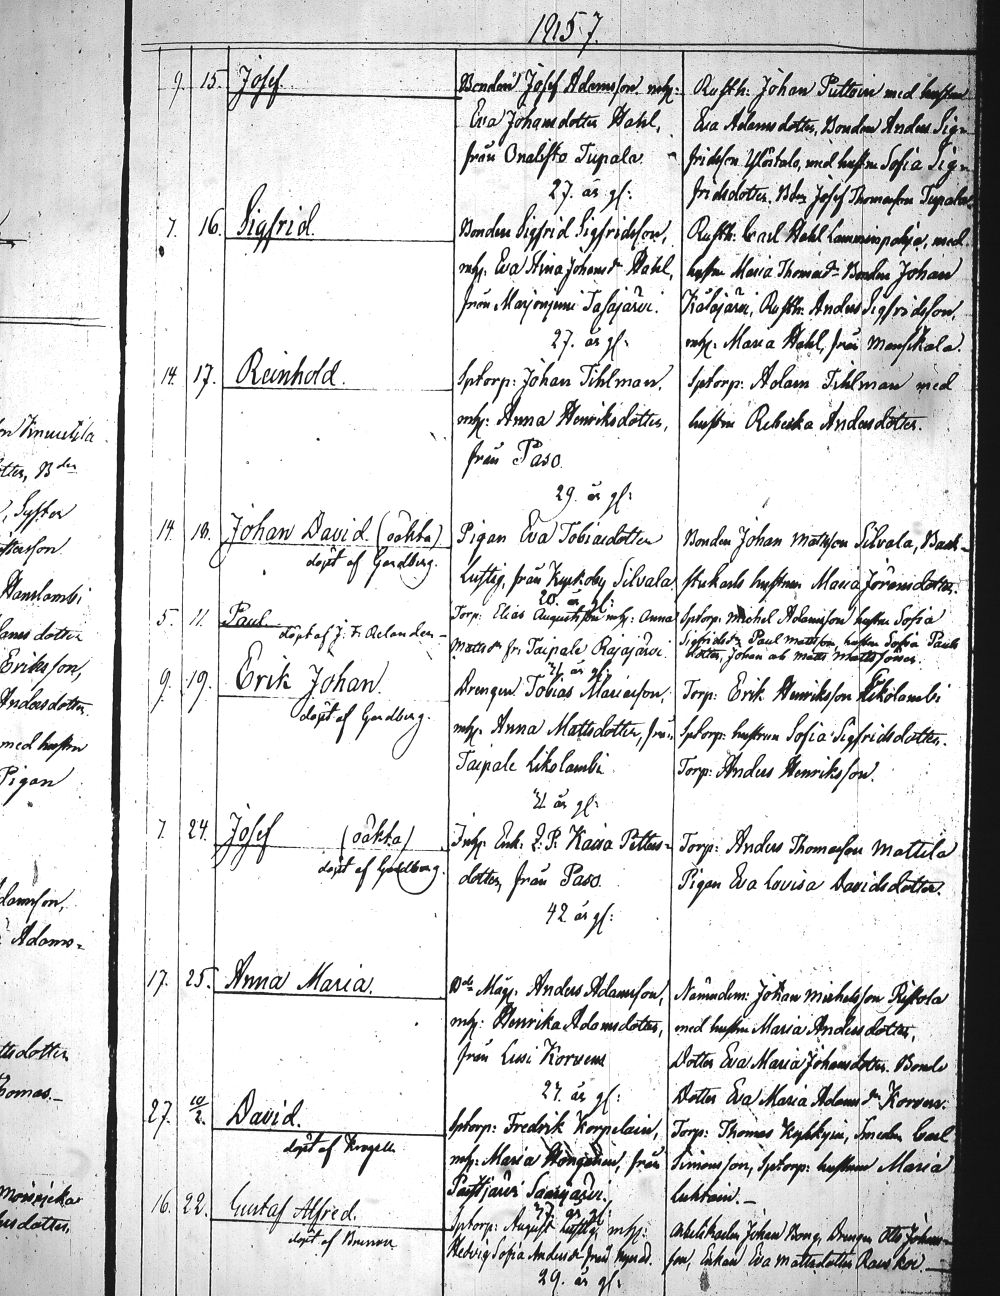 1857.
9. 15. Josef.
Bonden Josef Adamsson mh:
Eva Johansdotter Hahl,
från Onalisto Tupala.
27. år gl:
Rusth: Johan Puttoin med hustru
Eva Adamsdotter, Bonden Anders Sig-
fridsson Ylöstalo, med hustru Sofia Sig-
fridsdotter, Bden Josef Thomasson Tupala
7. 16. Sigfrid.
Bonden Sigfrid Sigfridsson,
mh: Eva Stina Johansdr Hahl,
från Marjoniemi Tasajärvi.
27. år gl:
Rusth: Carl Hahl Lamminpohja, med
hustru Maria Thomasdr Bonden Johan
Rusth: Anders Sigfridsson,
mh: Maria Hahl, från Mansikala.
14. 17. Reinhold.
Sptorp: Johan Tihlman,
mh: Anna Henriksdotter,
från Paso.
29. år gl:
Sptorp: Adam Tihlman med
hustru Rebecka Andersdotter.
14. 18. Johan David. (oäkta)
döpt af Gordberg.
Pigan Eva Tobiasdotter
Lustig, från Kyrkoby Silvala
20. år gl:
Bonden Johan Mattsson Silvala, Back-
stukarls hustrun Maria Jöransdotter.
5. 11. Paul.
döpt af J. F. Relander
Torp: Elias Augustsson mh: Anna
Mattsdr fr: Taipale Rajajärvi
31 år gl:
Sptorp: Michel Adamsson hustru Sofia
Sigfridsdr, Paul Mattsson, hustru Sofia Pauls
dotter, Johan
9. 19. Erik Johan.
döpt af Gordberg.
Drengen Tobias Mariasson,
mh: Anna Mattsdotter, från
Taipale Likolambi
21 år gl:
Torp: Erik Henriksson Likolambi
Sptorp: hustrun Sofia Sigfridsdotter.
Torp: Anders Henriksson.
7. 24. Josef (oäkta)
döpt af Gordberg.
Inh: Enk: Kaisa Petters-
dotter, från Paso.
42 år gl:
Torp: Anders Thomasson Mattila
Pigan Eva Lovisa Davidsdotter.
17. 25. Anna Maria.
Bde Måg: Anders Adamsson,
mh: Henrika Adamsdotter,
från Lusi Korvens
27. år gl:
Nämndem: Johan Michelsson Ristola
med hustru Maria Andersdotter,
Dotter Eva Maria Johansdotter. Bonde
Dotter Eva Maria Adamsdr Korvens.
27. 10/2. David.
döpt af Krogell
Sptorp: Fredrik Korpelain,
mh: Maria Höngehin, från
Saarijärvi.
37. år gl:
Torp: Thomas Kykkyin, Smeden Carl
Simonsson, Sptorp: hustrun Maria
Luktain.
16. 22. Gustaf Alfred.
döpt af Brunou
Sptorp: August Lustig, mh:
Hedvig Sofia Andersdr från
29. år gl:
Johan Bong, Drengen Otto Johans-
son, Enkan Eva Mattsdotter
on Vinnikkila
otter, Bden
Syster
Hanslambi
ans dotter
Eriksson,
Andersdotter.
med hustru
Pigan
damsson,
Adams-
ttsdotter
homas-
rsdotter,